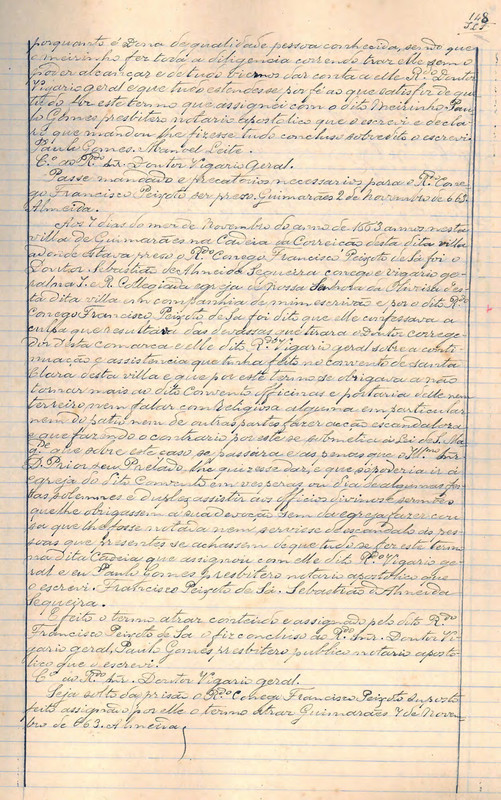 148
porquanto é Dona de qualidade pessoa conhecida, sendo que
o meirinho fez toda a diligencia correndo traz elle sem o
poder alcançar e de tudo viemos dar conta a elle Rdo Doutor
Vigario geral e que tudo estendesse por fé ao que satisfiz de que
tudo fiz este termo que assignei com o dito Meirinho Pau-
lo Gomes presbitero notario apostolico que o escrevi e decla-
ro que mandou lhe fizesse tudo concluso sobredito o escrevi.
Paulo Gomes. Manoel Leite.
C.º ao Rdo Snr. Doutor Vigario Geral.
Passe mandado e precatorios necessarios para o Rdo Cone-
go Francisco Peixoto ser preso. Guimarães 2 de Novembro de 663.
Almeida.
Aos 7 dias do mez de Novembro do anno de 1663 annos nesta
villa de Guimarães na Cadeia da Correição desta dita villa
adonde estava preso o Rdo Conego Francisco Peixoto de Sá foi o
Doutor Sebastião de Almeida Sequeira conego e vigario ge-
ral na I. e R. Collegiada egreja de Nossa Senhora da Oliveira d'es-
ta dita villa em companhia de mim escrivão e por o dito Rdo
Conego Francisco Peixoto de Sá foi dito que elle confessava a
culpa que resultar das devassas que tirara o Doutor correge-
dor d'esta comarca e elle dito Rdo Vigario geral sobre a conti-
nuação e assistencia que tinha feito no convento de Santa
Clara desta villa e que por este termo se obrigava a não
tornar mais ao dito Convento officinas e portaria delle nem
terreiro, nem fallar com Religiosa alguma em particular
nem do patio nem de outras partes fazer acção escandalosa
e que fazendo o contrario por este se submetia á Lei de S. Ma-
gde que sobre este caso se passara e as penas que o Illmo Snr.
D. Prior seu Prelado, lhe quizesse dar, e que só poderia ir á
egreja do dito Convento em vesperas ou dia de algumas fes-
tas solemnes e duplex assistir aos officios divinos e sermões
que lhe obrigassem a sua devoção sem da egreja fazer cou-
sa que lhe fosse notada nem servisse de escandalo ás pes-
soas que presentes se achassem de que tudo se fez este termo
na dita Cadeia que assignou com elle dito Rdo Vigario ge-
ral e eu Paulo Gomes presbitero notario apostolico que
o escrevi. Francisco Peixoto de Sá. Sebastião d'Almeida
Sequeira.
E feito o termo atraz conteúdo e assignado pelo dito Rdo
Francisco Peixoto de Sá o fiz concluso ao Rdo Snr. Doutor Vi-
gario geral. Paulo Gomes presbitero publico notario aposto-
lico que o escrevi.
C.º ao Rdo Snr. Doutor Vigario geral.
Seja solto da prisão o Rdo Conego Francisco Peixoto supposto
feito assignado por elle o termo atraz Guimarães 7 de Novem-
bro de 663. Almeida